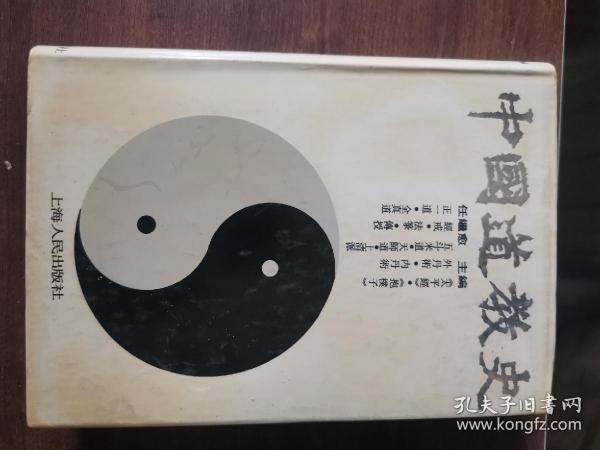 中國道教史
任繼愈 主編
《太平經》·《抱樸子》
外丹術·内丹術
五斗米道·天師道·上清派
經戒·法籙·傳授
正一道·全真道
上海人民出版社
孔夫子旧书网
www.kongfz.com